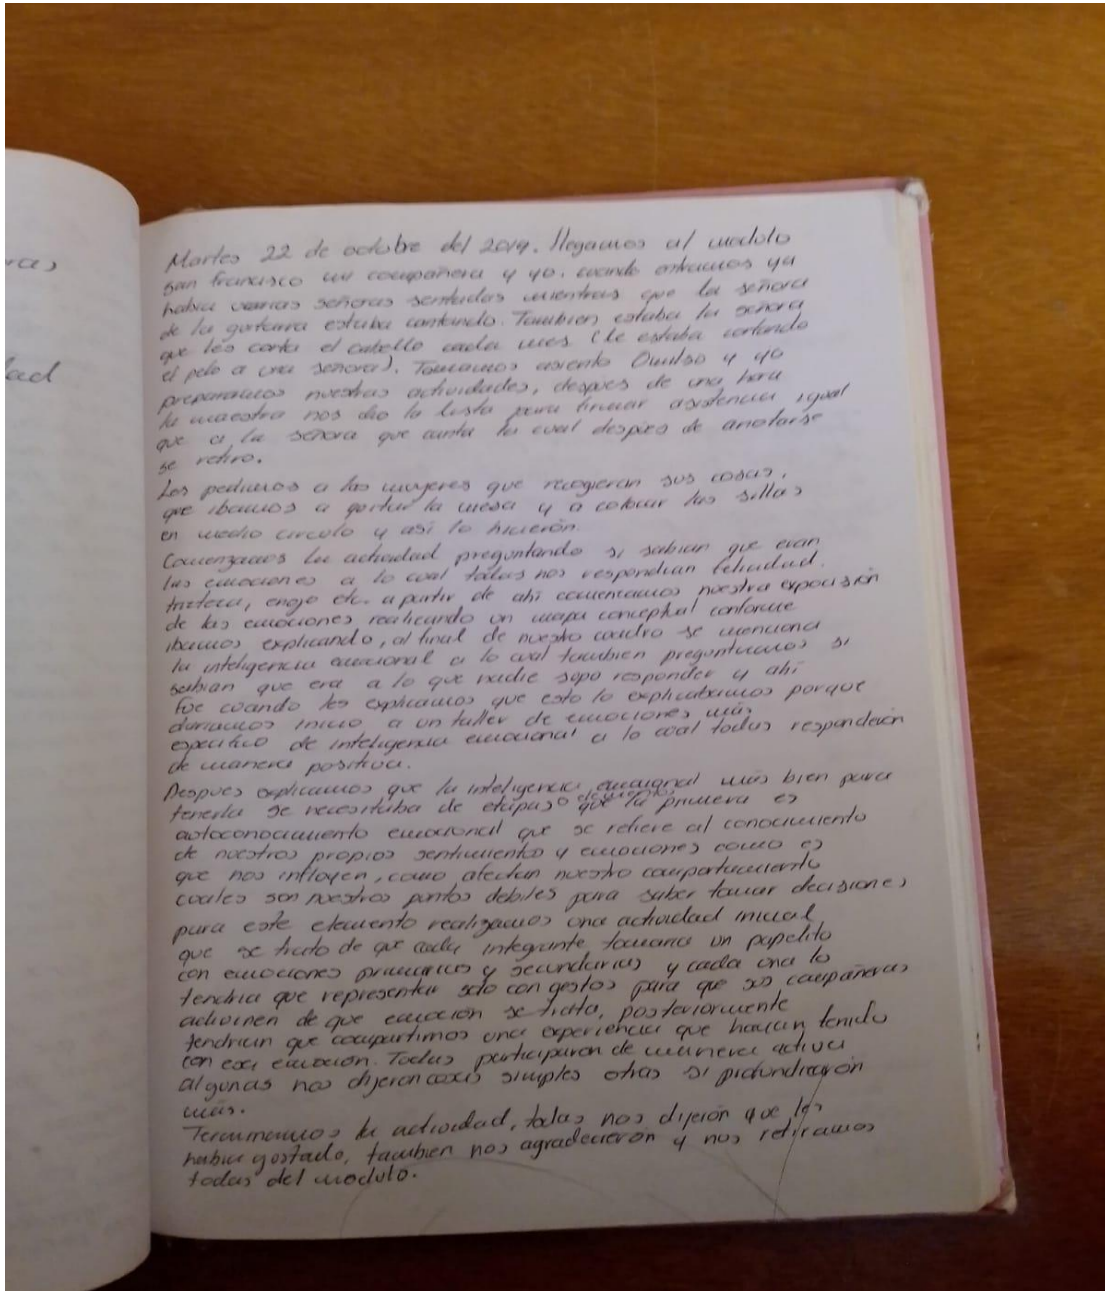 ras
dad
Martes 22 de octubre del 2019. llegamos al modulo
san francisco mi compañera y yo. cuando entramos ya
habia varias señoras sentadas mientras que la señora
de la guitarra estaba cantando. Tambien estaba la señora
que les corta el cabello cada mes (le estaba cortando
el pelo a una señora). Tomamos asiento y yo
preparamos nuestras actividades, despues de una hora
la maestra nos dio la lista para firmar asistencia, igual
que a la señora que canta la cual despues de anotarse
se retiro.
Les pedimos a las mujeres que recogieran sus cosas,
que ibamos a la mesa y a colocar las sillas
en medio circulo y asi lo hicierón.
Comenzamos la actividad preguntando si sabian que eran
las emociones a lo cual todas nos respondian felicidad.
tristeca, enojo etc. a partir de ahi comenzamos nuestra exposición
de las emociones realizando un mapa conceptual conforme
ibamos explicando, al final de nuestro cuadro se menciona
la inteligencia emocional a lo cual tambien preguntamos si
sabian que era a lo que nadie supo responder y ahi
fue cuando les explicamos que esto lo explicabamos porque
dariamos inicio a un taller de emociones más
especifico de inteligencia emocional a lo cual todas respondierón
de manera positiva.
Despues explicamos que la inteligencia emocional más bien para
tenerla se necesitaba de etapas o elementos que la primera es
autoconocimiento emocional que se refiere al conocimiento
de nuestros propios sentimientos y emociones como es
que nos influyen, como afectan nuestro comportamiento
cuales son nuestros puntos debiles para saber tomar decisiones
para este elemento realizamos una actividad inicial
que se trato de que cada integrante tomaria un papelito
con emociones primarias y secundarias y cada una lo
tendria que representar solo con gestos para que sus compañeras
adivinen de que emoción se trata, posteriormente
tendrian que compartirnos una experiencia que hayan tenido
con esa emoción. Todas participaron de manera activa
algunas nos dijeron cosas simples otras si profundizarón
más.
Terminamos la actividad, todas nos dijerón que les
habia gustado, tambien nos agradecierón y nos retiramos
todas del modulo.